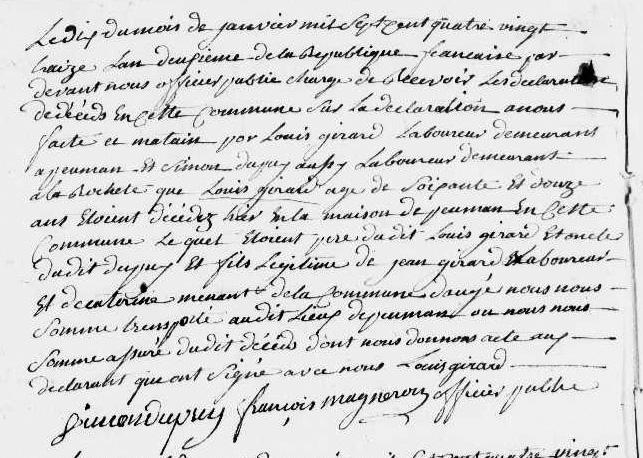 Le dix du mois de janvier mil sept cent quatre vingt
traize Lan deuxieme de la Republique francaise par
devant nous officier public charge de Recevoir Les declaration
de décéds En cette Commune sur La declaration a nous
facte ce matain por Louis girard Laboureur demeurant
a peuman Et Simon dupuy aussy Laboureur demeurant
a la Rochete que Louis girard age de soixante Et douze
ans Etoient décédez hier En la maison de peuman En cette
Commune Le quel Etoient pere du dit Louis girard Et oncle
du dit dupuy Et fils Legitime de jean girard Laboureur
Et de caterine menant de la Commune daugé nous nous
somme transporté au dit Lieux de peuman ou nous nous
somme assuré du dit décéds dont nous donnons acte aux
declarant que ont signé avec nous Louis girard
Simon dupuy françois magneron officier public
quatre vingt